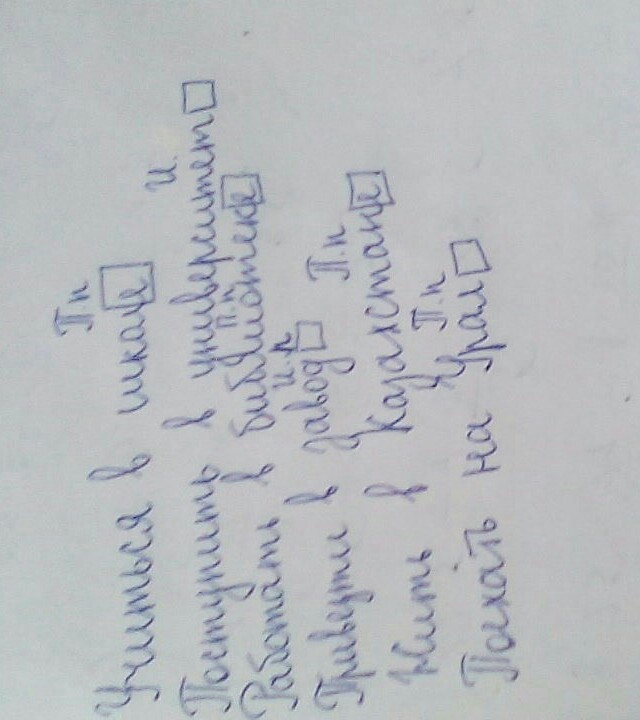 П.п
Учиться в школе
И.
Поступить в университет
П.п
Работать в библиотеке
И.п
Привезти в завод
П.п
Жить в Казахстане
П.п
Поехать на Урал